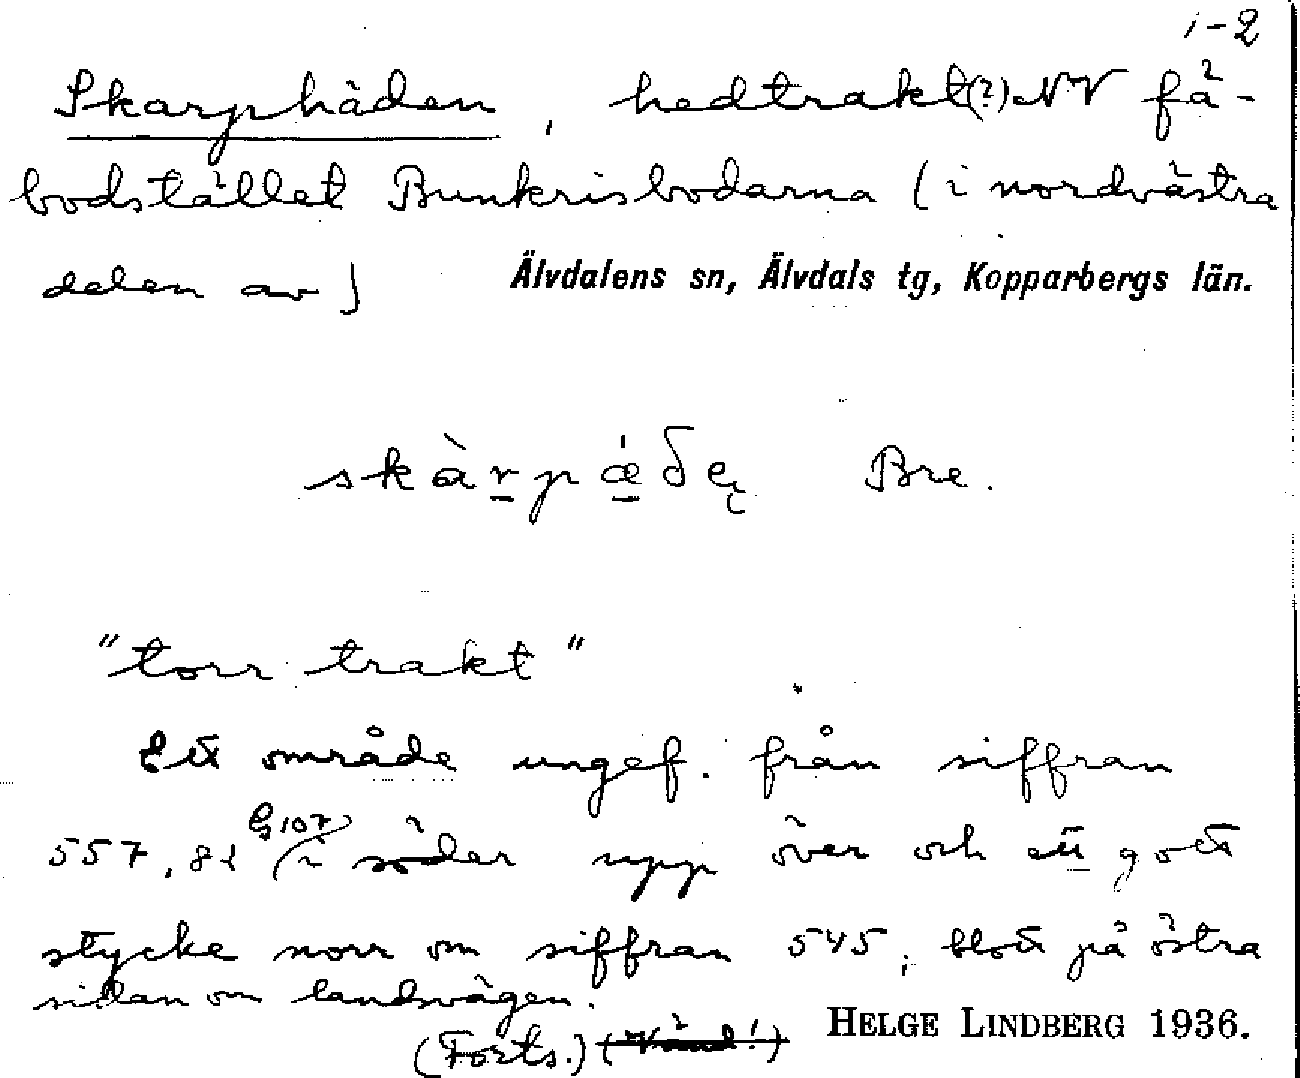 1-2
Skarphäden, hedtrakt(?) NV fä-
bodstället Bunkrisbodarna (i nordvästra
delen av) Älvdalens sn, Älvdals tg, Kopparbergs län.
skàrpǽðę Bre.
"torr trakt"
Ett område ungef. från siffran
557,82 G107 i söder upp över och ett gott
stycke norr om siffran 545, blott på östra
sidan om landsvägen.
(Forts.) (Vänd!) HELGE LINDBERG 1936.